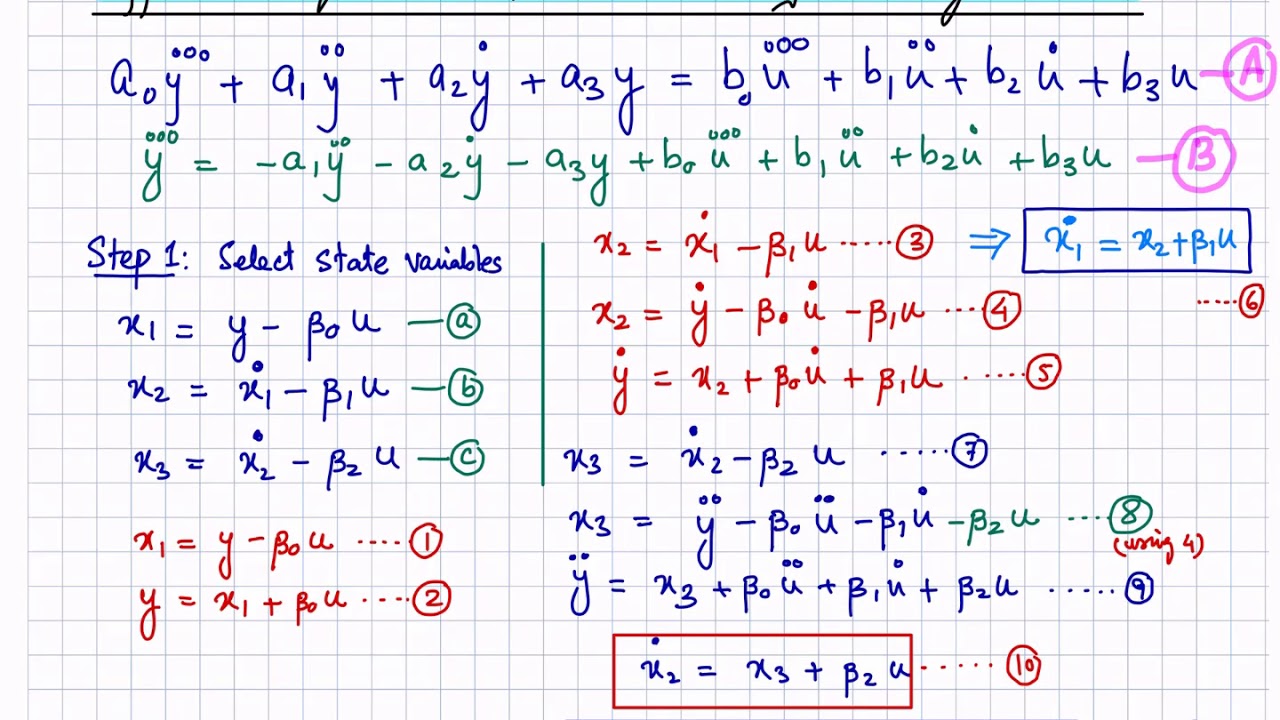 a₀y⃛ + a₁ÿ + a₂ẏ + a₃y = b₀u⃛ + b₁ü + b₂u̇ + b₃u — Ⓐ
y⃛ = -a₁ÿ - a₂ẏ - a₃y + b₀u⃛ + b₁ü + b₂u̇ + b₃u — Ⓑ
Step 1: Select state variables
x₁ = y - β₀u — ⓐ
x₂ = ẋ₁ - β₁u — ⓑ
x₃ = ẋ₂ - β₂u — ⓒ
x₁ = y - β₀u ····①
y = x₁ + β₀u ····②
x₂ = ẋ₁ - β₁u ·····③ ⇒ ẋ₁ = x₂ + β₁u
·····⑥
x₂ = ẏ - β₀u̇ - β₁u ····④
ẏ = x₂ + β₀u̇ + β₁u ·····⑤
x₃ = ẋ₂ - β₂u ·····⑦
x₃ = ÿ - β₀ü - β₁u̇ - β₂u ····⑧
(using 4)
ÿ = x₃ + β₀ü + β₁u̇ + β₂u ·····⑨
ẋ₂ = x₃ + β₂u ·····⑩